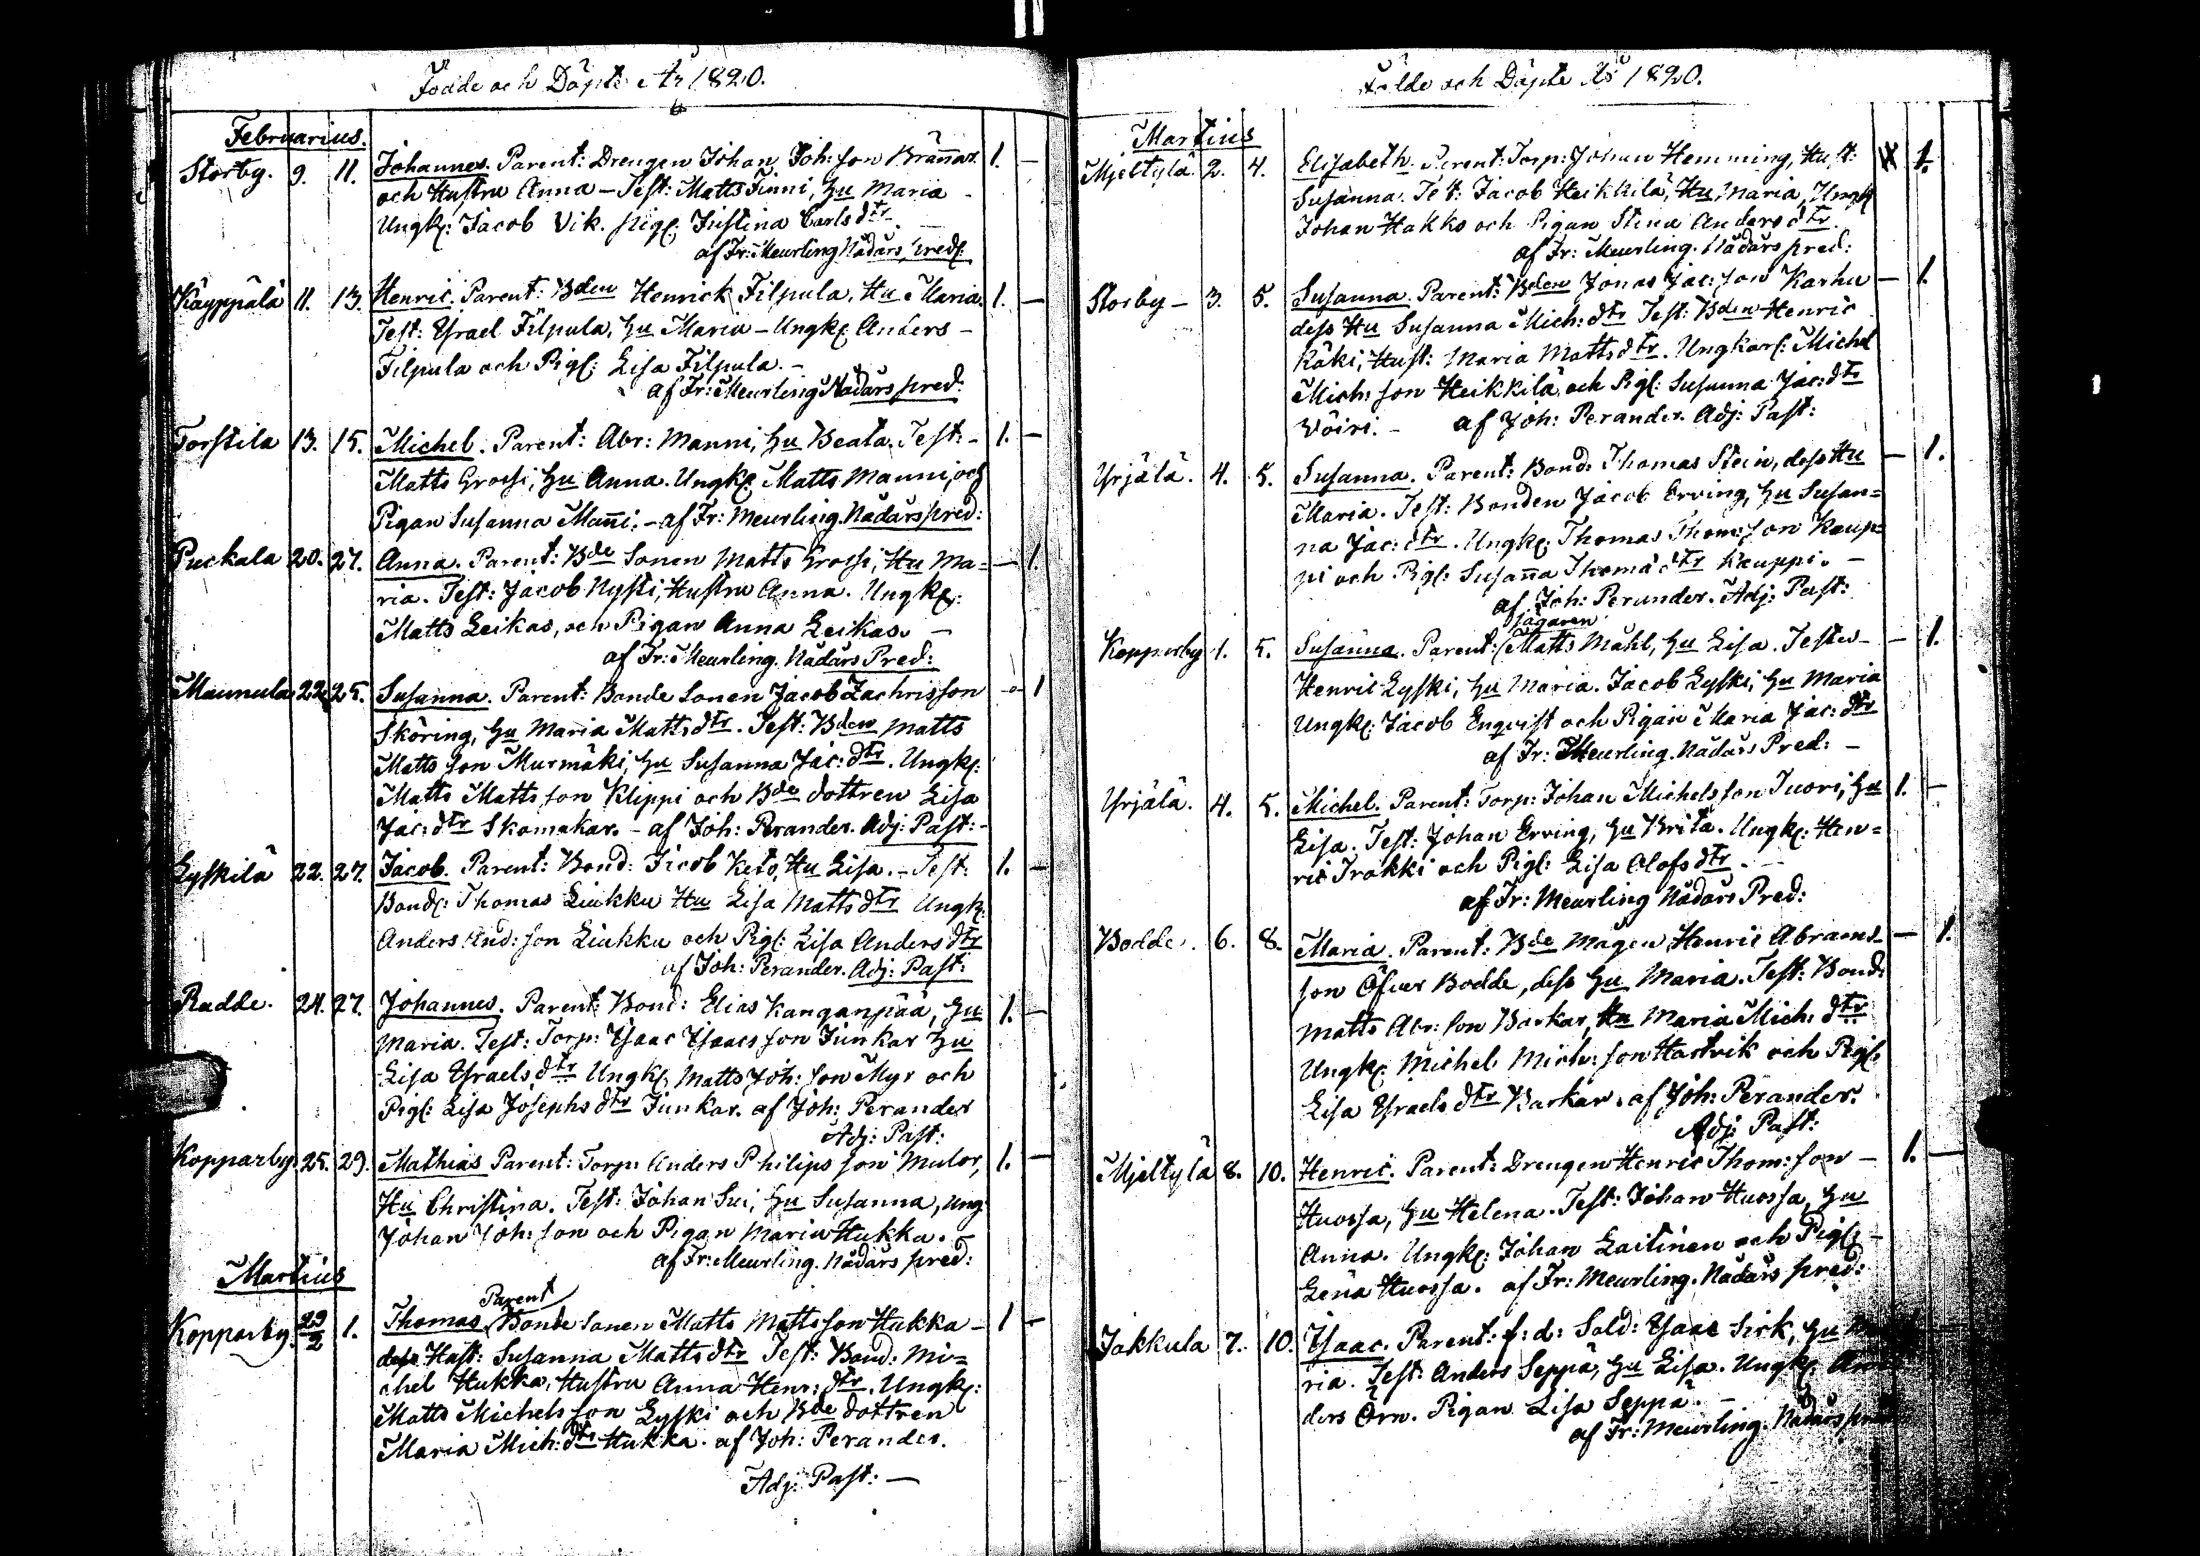 Födde och Döpte År 1820.
Februarius.
Storby. 9. 11. Johannes. Parent: Drengen Johan Joh: son Brännar 1. —
och Hustru Anna — Test: Matts Finni, Hu Maria -
Ungk: Jacob Vik. Pigl: Justina Carls dtr -
af Fr: Meurling Nådårs pred:
Käyppälä 11. 13. Henric. Parent: Bden Henrick Filpula, Hu Maria. 1. —
Test: Ysrael Filpula, Hu Maria — Ungk: Anders —
Filpula och Pigl: Lisa Filpula. —
af Fr: Meurling Nådårs pred:
Torstila 13. 15. Michel. Parent: Abr: Manni, Hu Beata. Test: - 1. —
Matts Grossi, Hu Anna. Ungk: Matts Manni, och
Pigan Susanna Mañi. — af Fr: Meurling. Nådårs pred:
Puckala 20. 27. Anna. Parent: Bde Sonen Matts Grossi, Hu Ma= — 1.
ria. Test: Jacob Nysti, Hustru Anna. Ungk:
Matts Leikas, och Pigan Anna Leikas. —
af Fr: Meurling. Nådårs Pred:
Maunula 22. 25. Susanna. Parent: Bonde Sonen Jacob Zachrisson — 1
Sköring, Hu Maria Matts dtr. Test: Bden Matts
Matts son Murmäki, Hu Susanna Jac: dtr. Ungk:
Matts Matts son Klippi och Bde dottren Lisa
Jac: dtr Skomakar. — af Joh: Perander. Adj: Past: -
Lyskilä 22. 27. Jacob. Parent: Bond: Jacob Keto, Hu Lisa. — Test: 1. —
Bond: Thomas Liukku Hu Lisa Matts dtr Ungk:
Anders And: son Liukku och Pigl: Lisa Anders dtr
af Joh: Perander. Adj: Past:
Rudde. 24. 27. Johannes. Parent: Bond: Elias Kanganpää, Hu 1. —
Maria. Test: Torp: Ysaac Ysaacs son Junkar Hu
Lisa Ysraels dtr Ungk: Matts Joh: son Myr och
Pigl: Lisa Josephs dtr Junkar. af Joh: Perander
Adj: Past:
Kopparby. 25. 29. Mathias Parent: Torp: Anders Philips son Mulor, 1. —
Hu Christina. Test: Johan Sui, Hu Susanna, Ung
Johan Joh: son och Pigan Maria Hukka. —
af Fr: Meurling. Nådårs pred:
Martius
Parent
Kopparby. 29/2 1. Thomas, Bonde Sonen Matts Matts son Hukka — 1 —
dess Hust: Susanna Matts dtr Test: Bond: Mi=
chel Hukka, Hustru Anna Henr: dtr. Ungk:
Matts Michels son Lyski och Bde dottren
Maria Mich: dtr Hukka. af Joh: Perander.
Adj: Past: —
Födde och Döpte År 1820.
Martius
Mjeltylä. 2. 4. Elisabeth. Parent: Torp: Johan Hemming, Hust: 1.
Susanna. Test: Jacob Heikkilä, Hu Maria, Ungk:
Johan Hakko och Pigan Stina Anders dtr
af Fr: Meurling. Nådårs pred:
Storby — 3. 5. Susanna. Parent: Bden Jonas Jac: son Karhu — 1.
dess Hu Susanna Mich: dtr Test: Bden Henric
Käki, Hust: Maria Matts dtr. Ungkarl: Michel
Mich: son Heikkilä och Pigl: Susanna Jac: dtr
Wöiri. — af Joh: Perander. Adj: Past:
Yrjälä. 4. 5. Susanna. Parent: Bond: Thomas Stein, dess Hu — 1.
Maria. Test: Bonden Jacob Erving, Hu Susan=
na Jac: dtr. Ungk: Thomas Thom: son Kaup=
pi och Pigl: Susaña Thoma dtr Kauppi. —
af Joh: Perander. Adj: Past:
Jägaren
Kopparby 1. 5. Susanna. Parent: Matts Måhl, Hu Lisa. Testes — — 1.
Henric Lyski, Hu Maria. Jacob Lyski, Hu Maria
Ungk: Jacob Enqvist och Pigan Maria Jac: dtr
af Fr: Meurling. Nådårs Pred: —
Yrjälä. 4. 5. Michel. Parent: Torp: Johan Michels son Tuori, Hu 1. —
Lisa. Test: Johan Erving, Hu Brita. Ungk: Hen=
ric Trokki och Pigl: Lisa Olofs dtr. —
af Fr: Meurling Nådårs Pred:
Bodde. 6. 8. Maria. Parent: Bde Mågen Henric Abrams — 1.
son Öfver Bodde, dess Hu Maria. Test: Bond:
Matts Abr: son Barkar, Hu Maria Mich: dtr
Ungk: Michel Mich: son Hastvik och Pigl:
Lisa Ysraels dtr Barkar. af Joh: Perander.
Adj: Past:
Mjeltylä 8. 10. Henric. Parent: Drengen Henric Thom: son — 1. —
Huossa, Hu Helena. Test: Johan Huossa, Hu
Anna. Ungk: Johan Laitinen och Pigl: —
Lena Huossa. af Fr: Meurling. Nådårs pred:
Jakkula 7. 10. Ysaac. Parent: f: d: Sold: Ysaac Sirk, Hu Ma
ria. Test: Anders Seppä, Hu Lisa. Ungk: An
ders Örn. Pigan Lisa Seppä. —
af Fr: Meurling. Nådårs pred